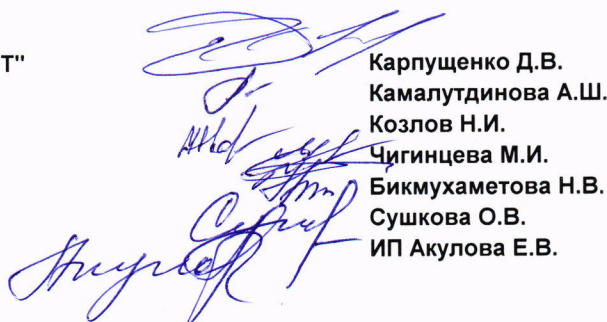 Т" Карпущенко Д.В.
Камалутдинова А.Ш.
Козлов Н.И.
Чигинцева М.И.
Бикмухаметова Н.В.
Сушкова О.В.
ИП Акулова Е.В.